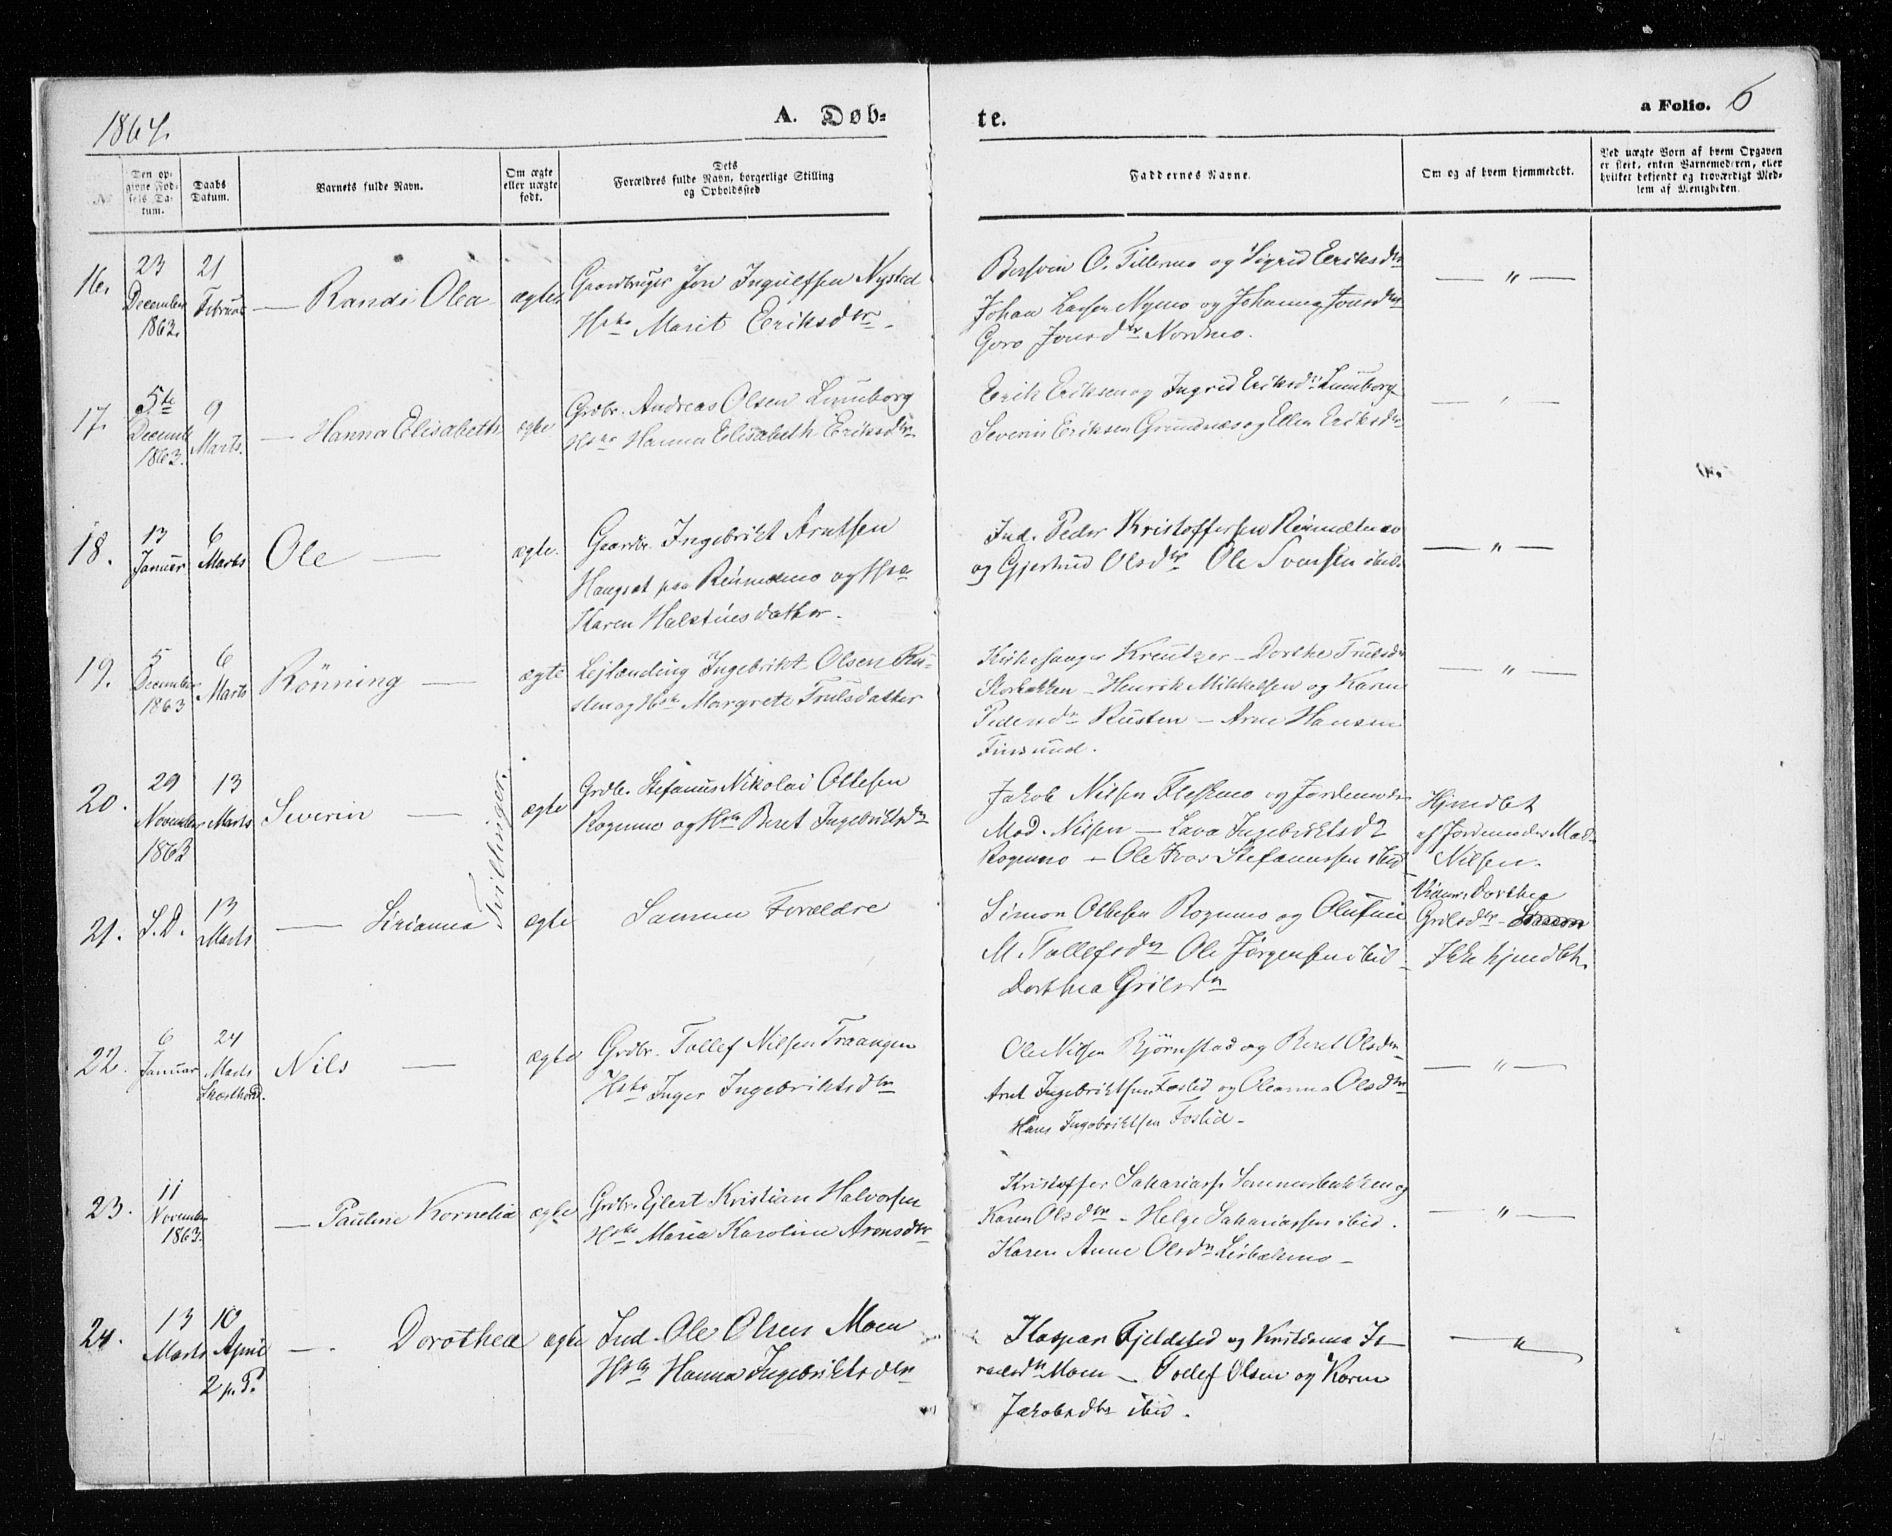 1864.
A. Døb-
te.
a Folio. 6
No
Den op-
givne Fød-
sels Da-
tum.
Daabs
Datum.
Barnets fulde Navn.
Om ægte
eller uægte
født.
Dets
Forældres fulde Navn, borgerlige Stilling
og Opholdssted
Faddernes Navne.
Om og af hvem hjemmedøbt.
Ved uægte Børn af hvem Opgaven
er skeet, enten Barnemoderen, eller
hvilket bekjendt og troværdigt Med-
lem af Menigheden.
16.
23
December
1862.
21
Februar
— Randi Olea
ægte
Gaardbruger Jon Ingulfsen Nysted
Hstu Marit Eriksdtr
Bersven O. Fillermo og Sigrid Eriksdtr
Johan Larsen Nymo og Johanna Jonsdtr
Goro Jonsdtr Nordmo.
— " —
17.
5te
Decemb
1863.
9
Marts.
— Hanna Elisabeth
ægte
Grdbr. Andreas Olsen Lunneborg
Hstu Hanna Elisabeth Eriksdtr
Erik Eriksen og Ingrid Eriksdtr Lunneborg
Severin Eriksen Grundnæs og Ellen Eriksdtr
18.
13
Januar
6
Marts
Ole —
ægte.
Gaardbr. Ingebrigt Arntsen
Haugset paa Rennemo og Hstu
Karen Halstensdatter.
Ind. Peder Kristoffersen
og Gjertrud Olsdtr Ole Svensen ibid.
— " —
19.
5
December
1863
6
Marts
Rønning —
ægte
Lejlænding Ingebrikt Olsen Ru-
sten og Hstu Margrete Trulsdatter
Kirkesanger Kreutzer — Dorthe Trulsdtr
Storbakken — Henrik Mikkelsen og Karen
Pedersdtr Rusten — Arne Hansen
Finsund.
— " —
20.
29
November
1863
13
Marts
Severin —
Tvillinger.
ægte
Grdbr. Stefanus Nikolai Ottesen
Rogenmo og Hstu Beret Ingebriktsdtr
Jakob Nilsen Fleskmo og Jordemoder
Mad. Nilsen — Lava Ingebriktsdtr
Rogenmo — Ole Ivar Stefanussen ibid
Hjmdbt
af Jordemoder Mad.
Nilsen.
21.
S. D.
13
Marts
— Sirianna
ægte
Samme Forældre
Simon Ottesen Rogenmo og Olufine
M. Tollefsdtr Ole Jørgensen ibid
Dorthea Grilsdtr
Dorthea
Grilsdtr —
Ikke hjmdbt.
22.
6
Januar
24
Marts
Skærthord.
Nils —
ægte
Grdbr. Tollef Nilsen Traangen
Hstu Inger Ingebriktsdtr
Ole Nilsen Bjørnstad og Beret Olsdtr
Arnt Ingebriktsen Foslid og Oleanna Olsdtr
Hans Ingebriktsen Foslid —
— " —
23.
11
November
1863.
— Pauline Kornelia
ægte
Grdbr. Ejlert Kristian Halvorsen
Hstu Maria Karoline Arensdtr
Kristoffer Sakariass. Sommerbakken og
Karen Olsdtr — Helge Sakariassen ibid.
Karen Anne Olsdtr
— " —
24.
13
Marts
10
April
2 p. P.
— . Dorothea
ægte
Ind. Ole Olsen Moen
Hstu Hanna Ingebriktsdtr
Kaspar Fjeldsted og Kristina Is-
raelsdtr Moen — Tollef Olsen og Karen
Jakobsdtr ibid.
— " —